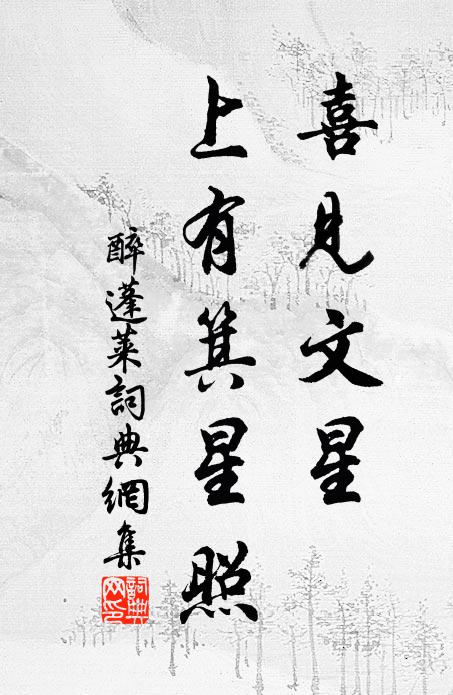 喜見文星
上有箕星照
醉蓬萊詞典網集
詞典
网印